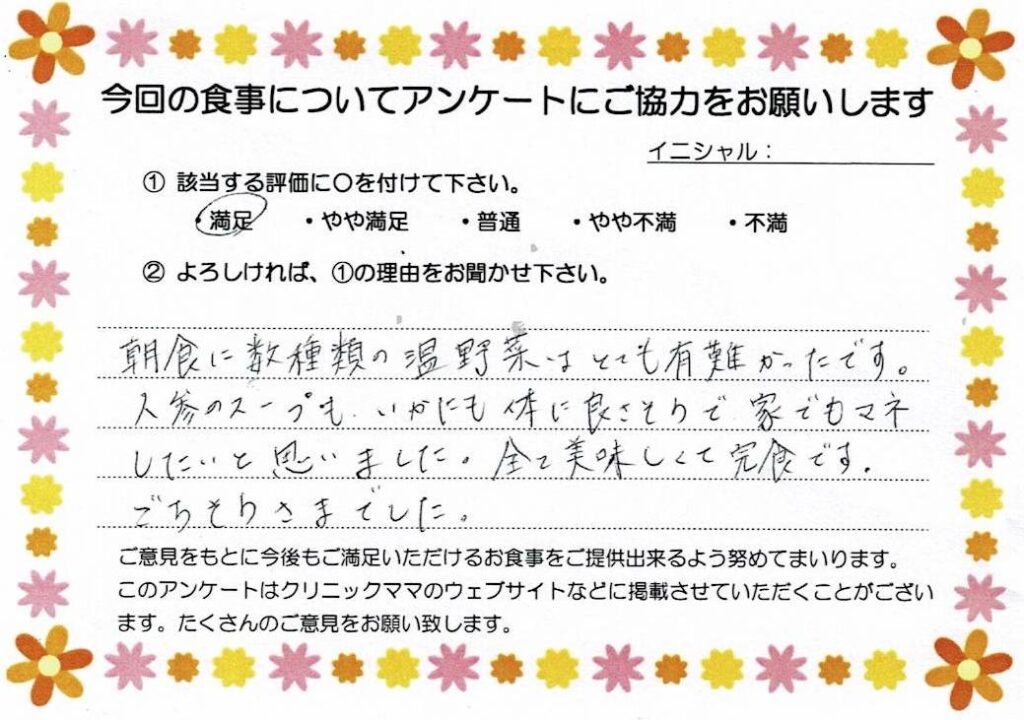 今回の食事についてアンケートにご協力をお願いします
イニシャル：
① 該当する評価に〇を付けて下さい。
・満足 ・やや満足 ・普通 ・やや不満 ・不満
② よろしければ、①の理由をお聞かせ下さい。
朝食に数種類の温野菜はとても有難かったです。
人参のスープも、いかにも体に良さそうで家でもマネ
したいと思いました。全て美味しくて完食です。
ごちそうさまでした。
ご意見をもとに今後もご満足いただけるお食事をご提供出来るよう努めてまいります。
このアンケートはクリニックママのウェブサイトなどに掲載させていただくことがござい
ます。たくさんのご意見をお願い致します。